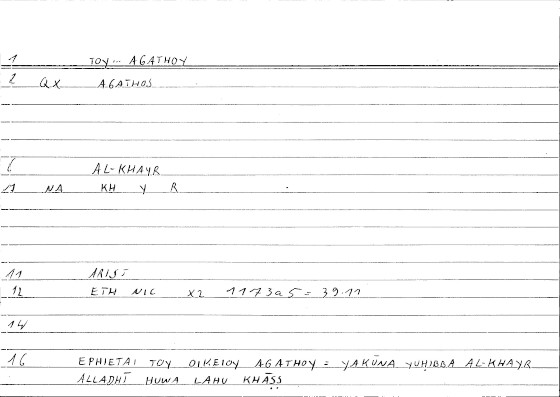 1 TOY... AGATHOY
2 QX AGATHOS
6 AL-KHAYR
NA KH Y R
11 ARIST
12 ETH NIC X2 1173a5 = 39.11
14
16 EPHIETAI TOY OIKEIOY AGATHOY = YAKŪNA YUḤIBBA AL-KHAYR
ALLADHĪ HUWA LAHU KHĀṢṢ